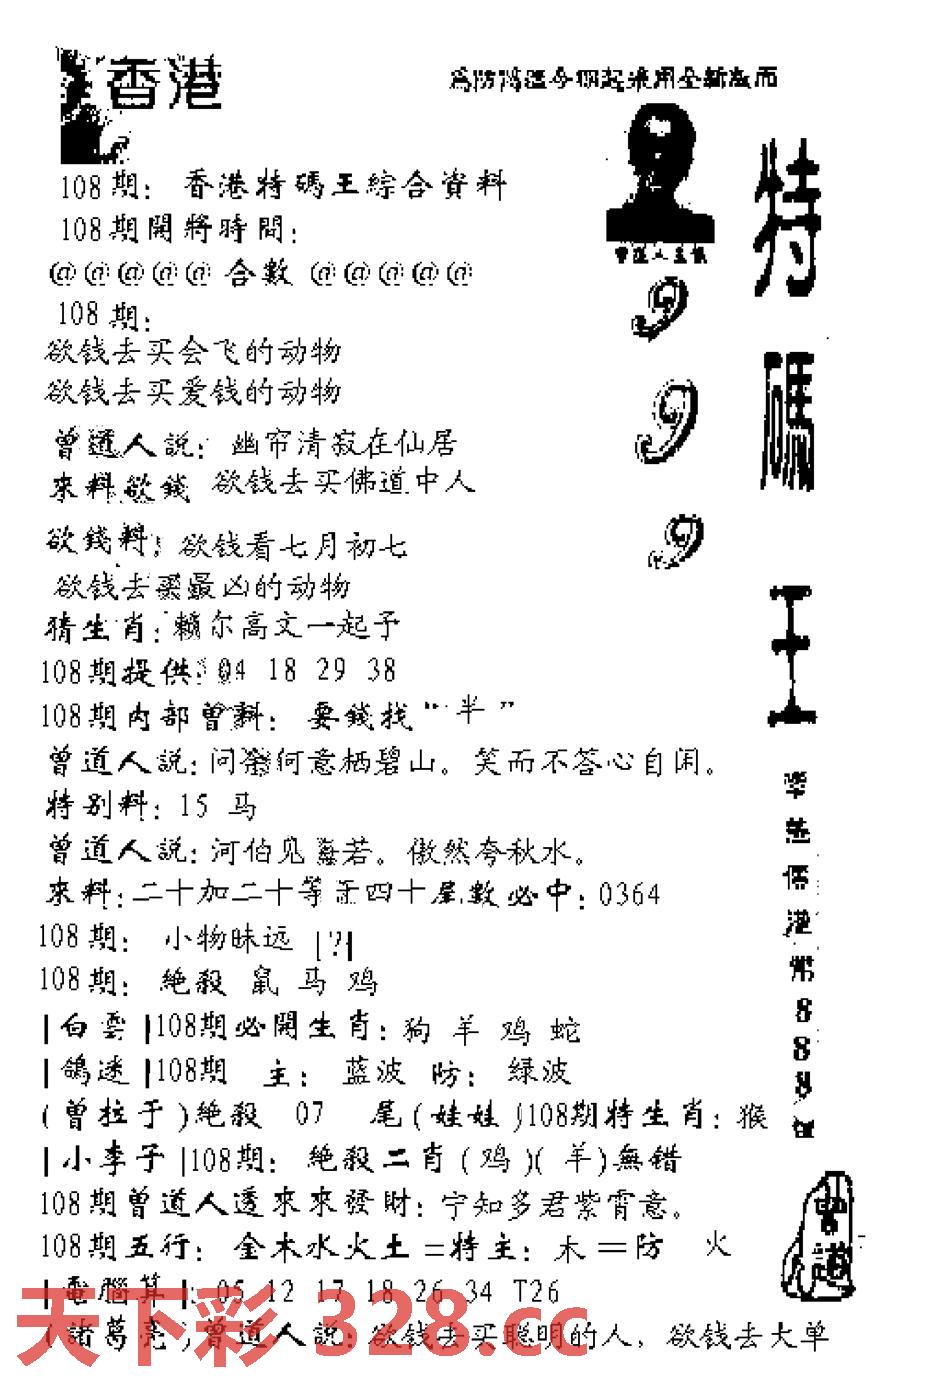 香港
特碼王
999
108期：香港特碼王綜合資料
108期開將時間：
@@@@@合數@@@@@
108期：
欲钱去买会飞的动物
欲钱去买爱钱的动物
曾道人説：幽帘清寂在仙居
來料欲錢 欲钱去买佛道中人
欲錢料：欲钱看七月初七
欲钱去买最凶的动物
猜生肖：籁尔高文一起予
108期提供：04 18 29 38
108期内部曾料：要錢找“半”
曾道人説：问爺何意栖碧山。笑而不答心自闲。
特别料：15 马
曾道人説：河伯见海若。傲然夸秋水。
來料：二十加二十等于四十尾數必中：0364
108期：小物昧远 |?|
108期：絶殺 鼠 马 鸡
|白雲|108期必開生肖：狗 羊 鸡 蛇
|鴿迷|108期 主：蓝波 防：绿波
(曾拉于)絶殺 07 尾(娃娃)108期特生肖：猴
|小李子|108期：絶殺二肖(鸡)(羊)無错
108期曾道人透來來發財：宁知多君紫霄意。
108期五行：金木水火土=特主：木=防 火
|電腦算|：05 12 17 18 26 34 T26
(諸葛亮)曾道人説：欲钱去买聪明的人，欲钱去大单
天下彩 328.cc
888
曾道